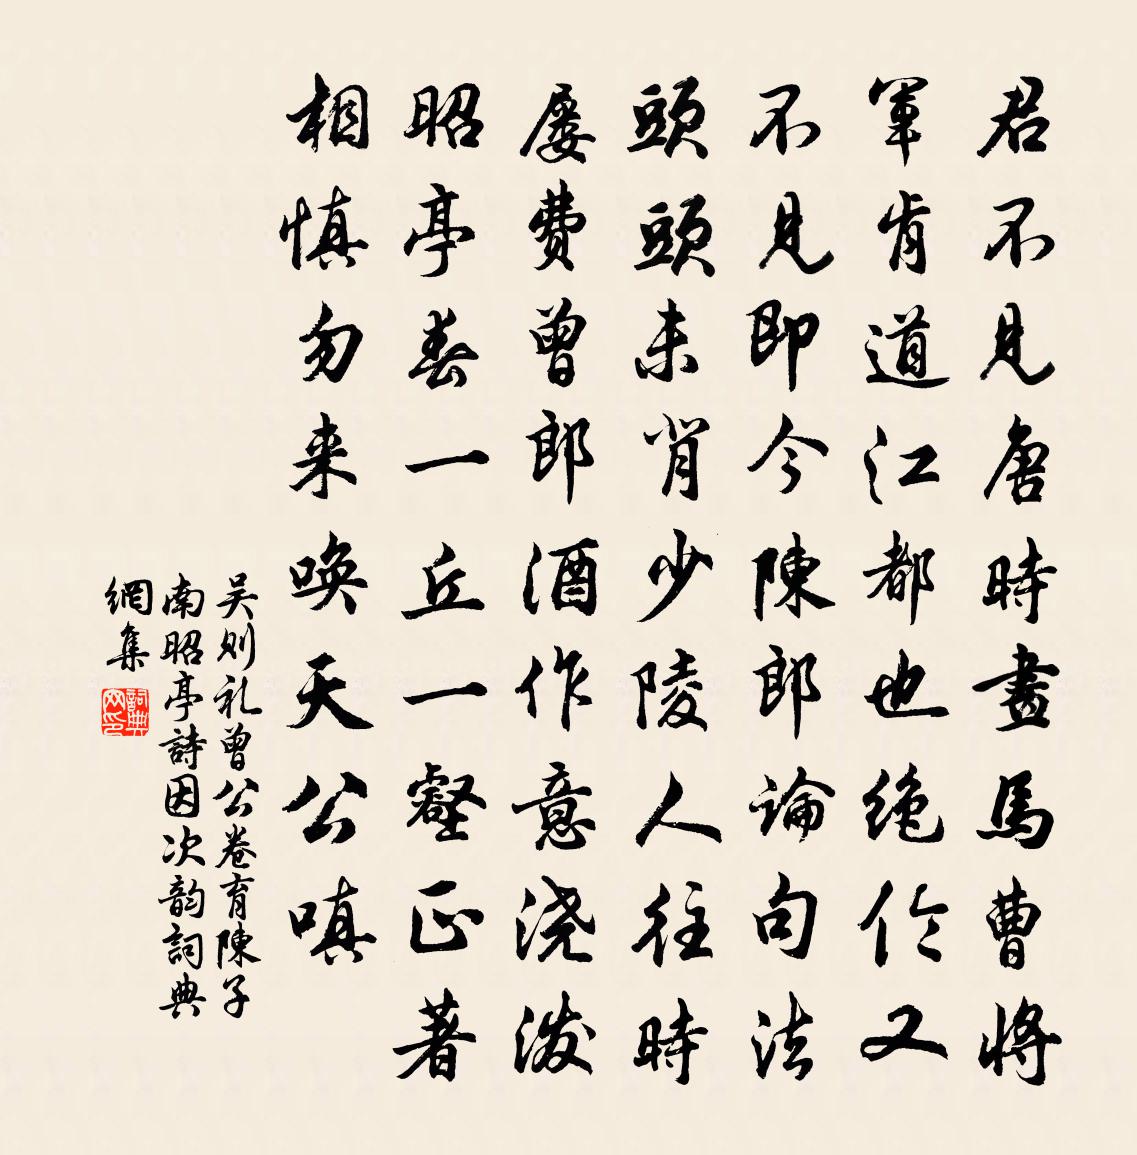 君不見唐時畫馬曹將
軍肯道江都也絶伶又
不見即今陳郎論句法
頭頭未肯少陵人往時
屡費曾郎酒作意浇泼
昭亭春一丘一壑正著
相慎勿来唤天公嗔
吴则礼曾公卷育陳子
南昭亭詩因次韵詞典
網集